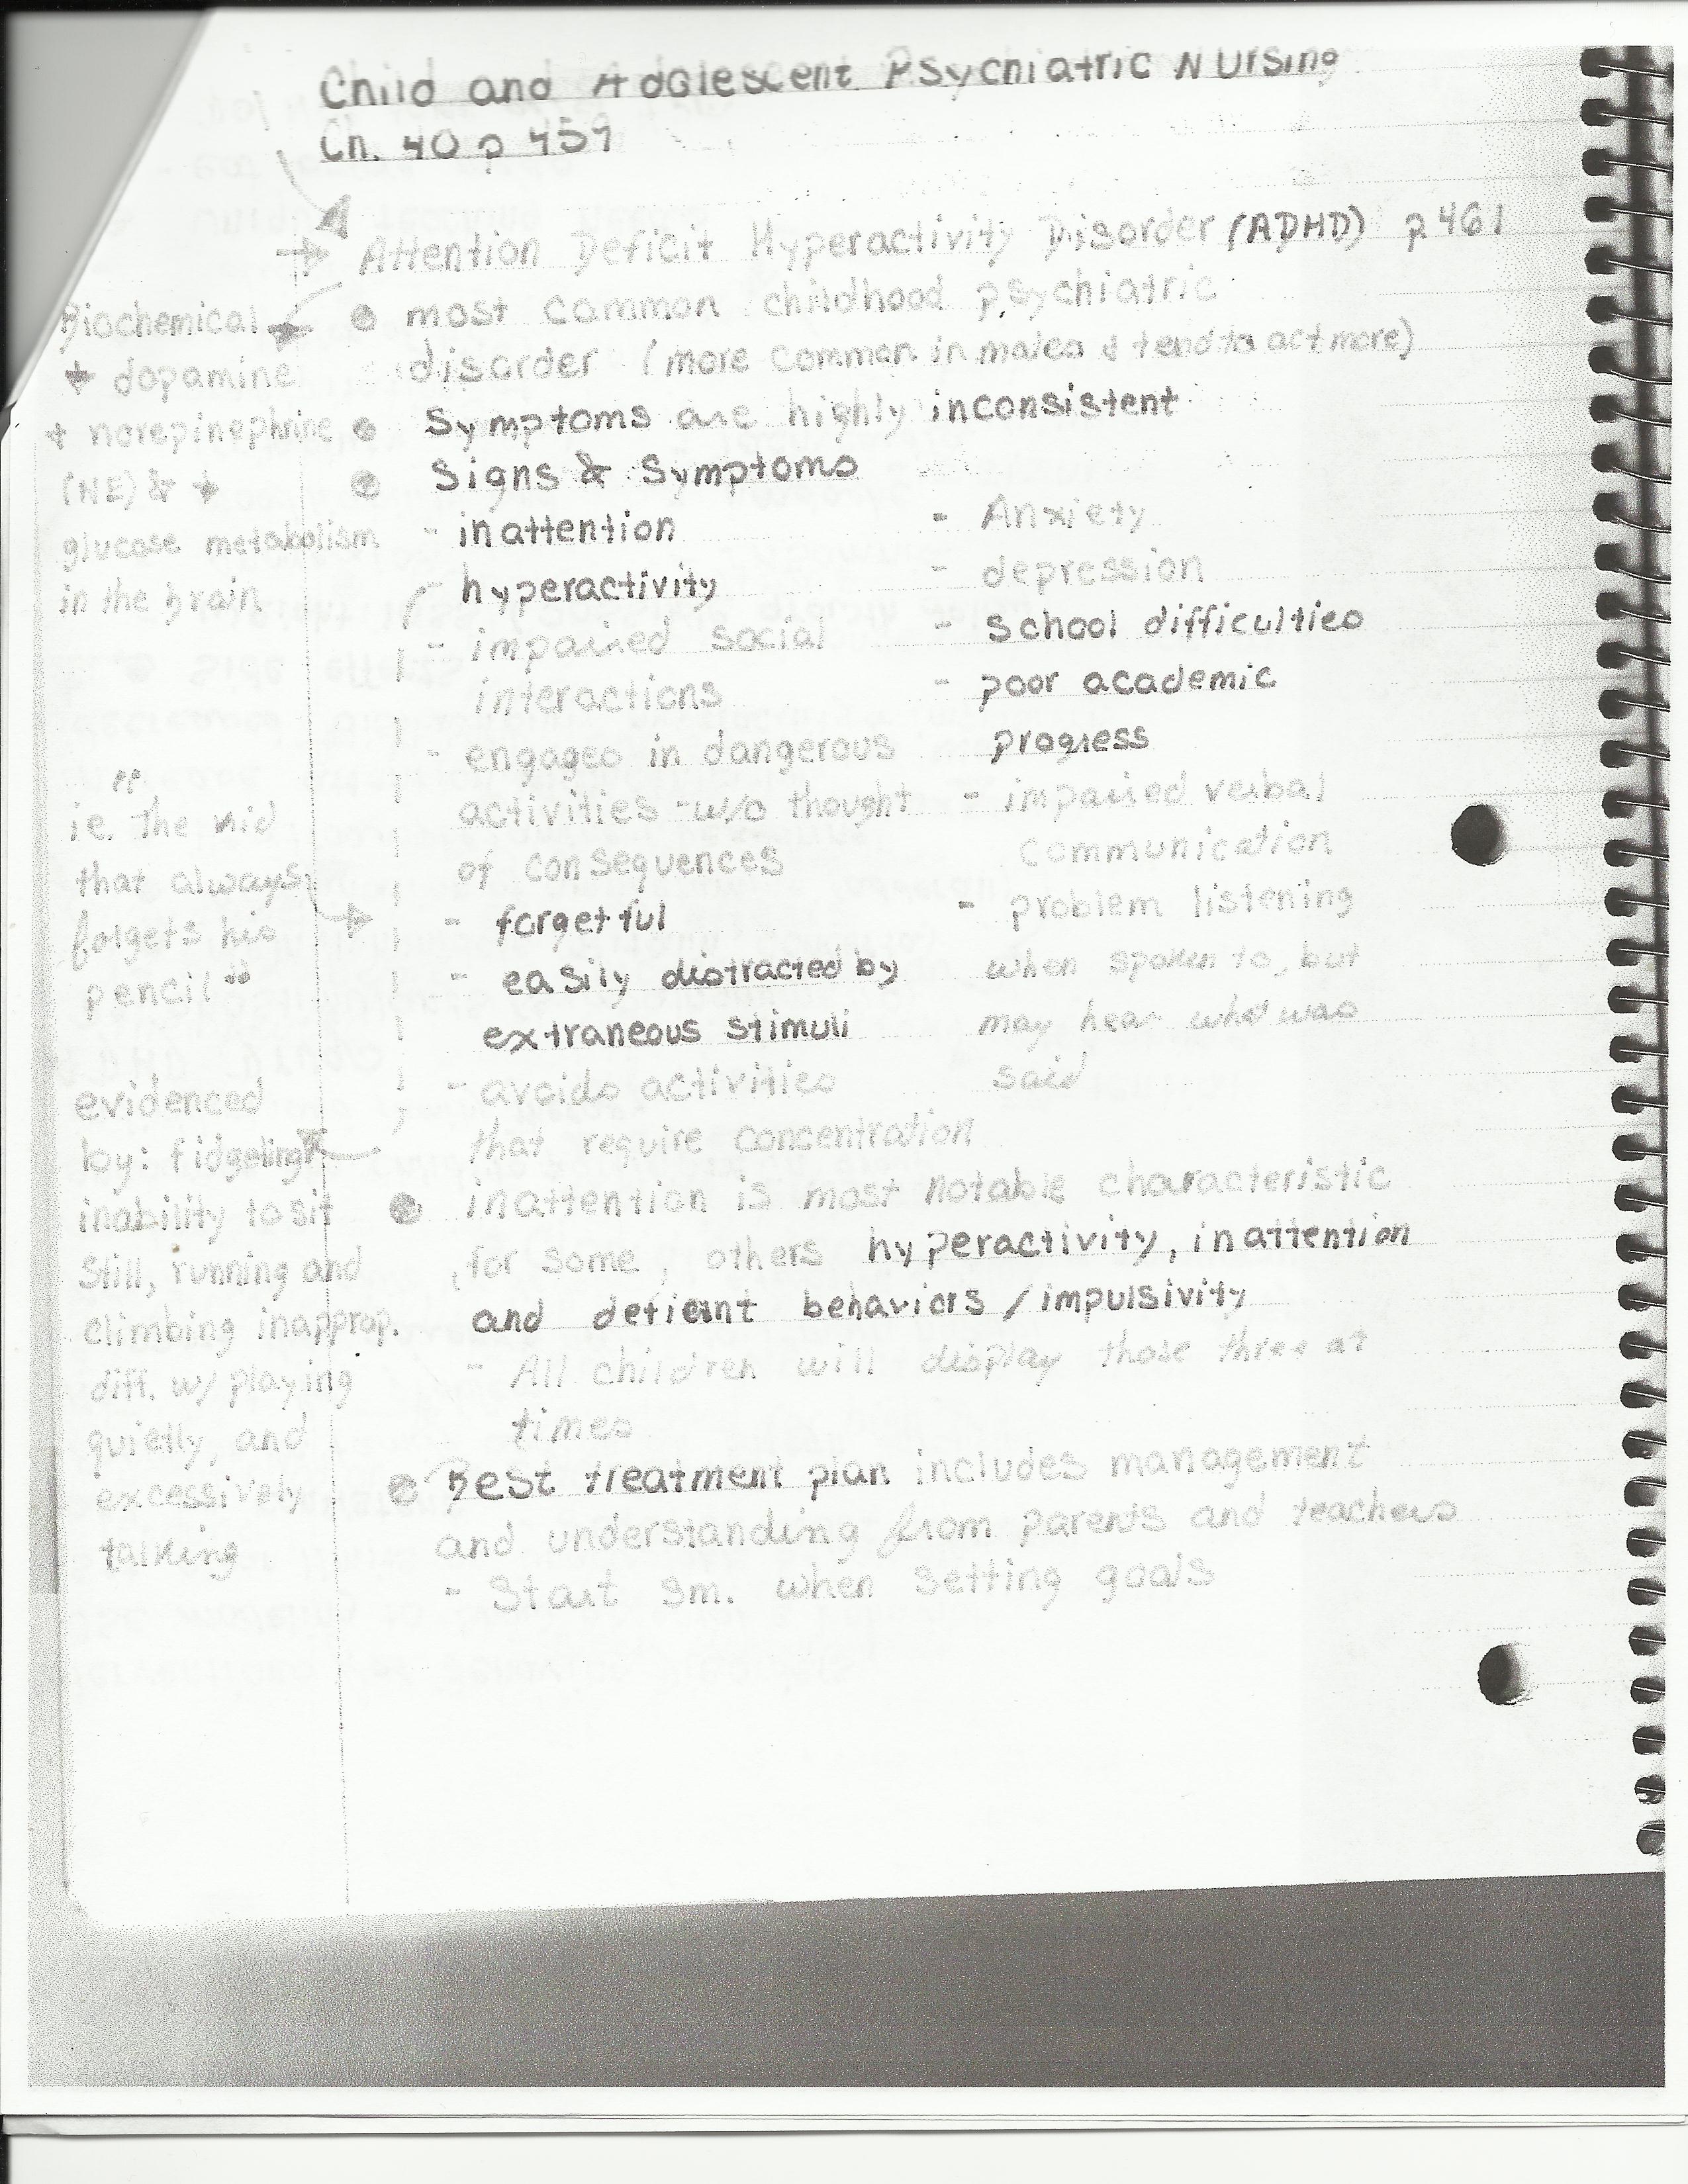 Child and Adolescent Psychiatric Nursing
Ch. 40 p 459
Attention Deficit Hyperactivity Disorder (ADHD) p 461
most common childhood psychiatric
disorder (more common in males & tend to act more)
Symptoms are highly inconsistent
Signs & Symptoms
- inattention
- hyperactivity
- impaired social
interactions
- engages in dangerous
activities w/o thought
of consequences
- forgetful
- easily distracted by
extraneous stimuli
- avoids activities
that require concentration
- Anxiety
- depression
- school difficulties
- poor academic
progress
- impaired verbal
communication
- problem listening
when spoken to, but
may hear what was
said
inattention is most notable characteristic
for some, others hyperactivity, inattention
and defiant behaviors / impulsivity
- All children will display those three at
times
Best treatment plan includes management
and understanding from parents and teachers
- Start sm. when setting goals
Biochemical
↓ dopamine
+ norepinephrine
(NE) & ↓
glucose metabolism
in the brain
"
ie. the kid
that always
forgets his
pencil"
evidenced
by: fidgeting
inability to sit
still, running and
climbing inapprop.
diff. w/ playing
quietly, and
excessively
talking